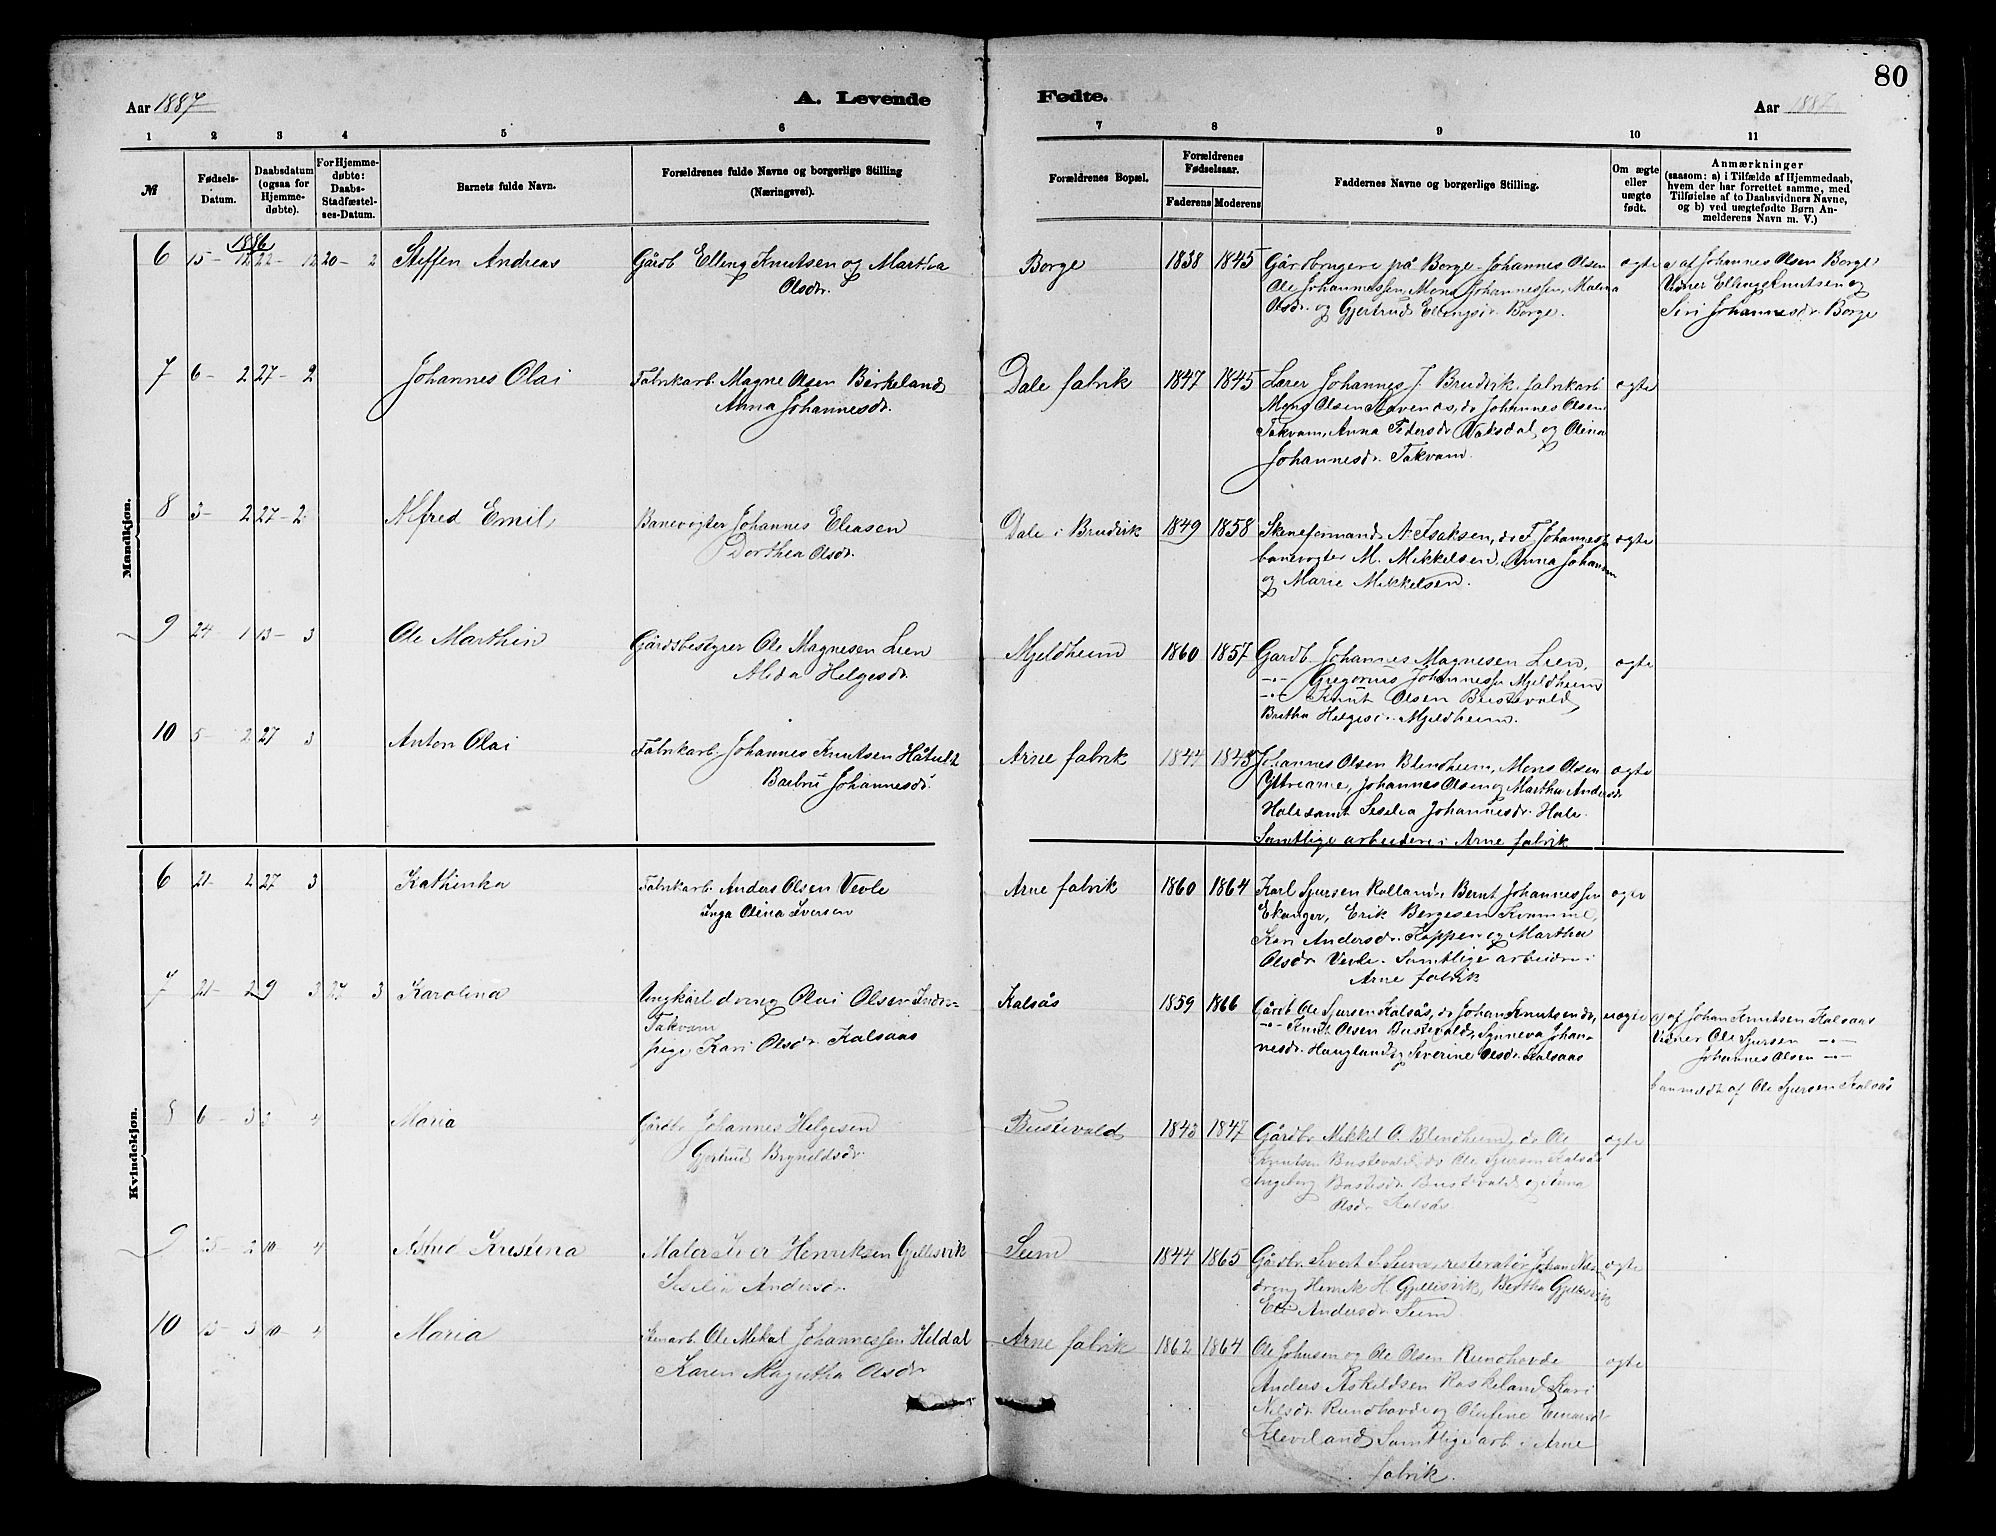 80
Aar 1887
A. Levende
Fødte.
Aar 1887
1 2 3 4 5 6
7 8 9 10 11
№
Fødsels-Datum.
Daabsdatum (ogsaa for Hjemme-døbte).
For Hjemme-døbte: Daabs-Stadfæstel-ses-Datum.
Barnets fulde Navn.
Forældrenes fulde Navne og borgerlige Stilling (Næringsvei).
Forældrenes Bopæl.
Forældrenes Fødselsaar.
Faderens Moderens
Faddernes Navne og borgerlige Stilling.
Om ægte eller uægte født.
Anmærkninger
(saasom: a) i Tilfælde af Hjemmedaab,
hvem der har forrettet samme, med
Tilføielse af to Daabsvidners Navne,
og b) ved uægtefødte Børn An-
melderens Navn m. V.)
Mandkjøn.
1886
6 15-12 22-12 20-2 Steffen Andreas Gårdb Elling Knutsen og Martha
Olsdr.
Borge 1838 1845 Gårdbrugere på Borge Johannes Olsen
Ole Johannessen, Mons Johannessen, Malena
Olsdr. og Gjertrud Ellingsdr. Borge.
ægte
a) af Johannes Olsen Borge
Vidner Elling Knutsen og
Siri Johannesdr. Borge
7 6-2 27-2 Johannes Olai Fabrikarb. Magne Olsen Birkeland
Anna Johannesdr.
Dale fabrik 1847 1845 Lærer Johannes J. Brudvik, fabrikarb
Mons Olsen, do Johannes Olsen
Takvam, Anna Pedersdr Vaksdal, og Olina
Johannesdr. Takvam.
ægte
8 3-2 27-2 Alfred Emil Banevogter Johannes Eliasen
Dorthea Olsdr.
Dale i Brudvik 1849 1858 Skeneformand A. Isaksen, do F. Johannesen
banevogter M. Mikkelsen, Anna Johansen
og Marie Mikkelsen.
ægte
9 24-1 13-3 Ole Marthin Gårdsbestyrer Ole Magnesen Lien
Alida Helgesdr.
Mjeldheim 1860 1857 Gardb. Johannes Magnesen Lien,
-"- Gregorius Johannessen Mjeldheim
-"- Knut Olsen Bustevold,
Britha Helgesd. Mjeldheim.
ægte
10 5-2 27 3 Anton Olai Fabrikarb. Johannes Knutsen Håtuft
Barbru Johannesdr.
Arne fabrik 1844 1843 Johannes Olsen Blindheim, Mons Olsen
Ytrearne, Johannes Olsen og Martha Andersdr
Hole samt Sesilia Johannesdr. Hole.
Samtlige arbeidere i Arne fabrik
ægte
Kvindekjøn.
6 21-2 27 3 Kathinka Fabrikarb. Anders Olsen Vevle
Inga Olina Iversen
Arne fabrik 1860 1864 Karl Sjursen Rolland, Bernt Johannessen
Ekanger, Erik Bergesen Kvamme,
Kari Andersdr. Koppen og Martha
Olsdr Vevle. Samtlige arbeidere i
Arne fabrik
ægte
7 21-2 9 3 27 3 Karolina Ungkarl dreng Olai Olsen Indre-
Takvam
pige Kari Olsdr. Kalsaas
Kalsås 1859 1866 Gårdb Ole Sjursen Kalsås, do Johan Knutsen do,
-"- Knut Olsen Bustevold, Synneva Johan-
nesdr. Haugland og Severine Olsdr. Kalsaas
uægte
a) af Johan Knutsen Kalsaas
Vidner Ole Sjursen -"-
Johannes Olsen -"-
b) anmeldt af Ole Sjursen Kalsås
8 6-3 3 4 Maria Gårdb. Johannes Helgesen
Gjertrud Bryneldsdr.
Bustevold 1843 1847 Gårdb. Mikkel O. Blindheim, do Ole
Knutsen Bustevold, do Ole Sjursen Kalsås
Ingeborg Bustevold og Anna
Olsdr Kalsås.
ægte
9 25-2 10-4 Astrid Kristina Maler Iver Henriksen Gjellesvik
Sesilia Andersdr.
Seim 1844 1865 Gårdbr. Sivert S. Seim, restoratør Johan
dreng Henrik H. Gjellesvik, Bertha Gjellesvik
Eli Andersdr Seim.
ægte
10 13-3 10-4 Maria Ole Mikal Johannessen Heldal
Karen Magretha Olsdr
Arne fabrik 1862 1864 Ole Johnsen og Ole Olsen Rundhovde
Anders Askeldsen Raskeland, Kari
Nilsdr. Rundhovde og Olufine
Kleiveland Samtlige arb. i Arne
fabrik.
ægte